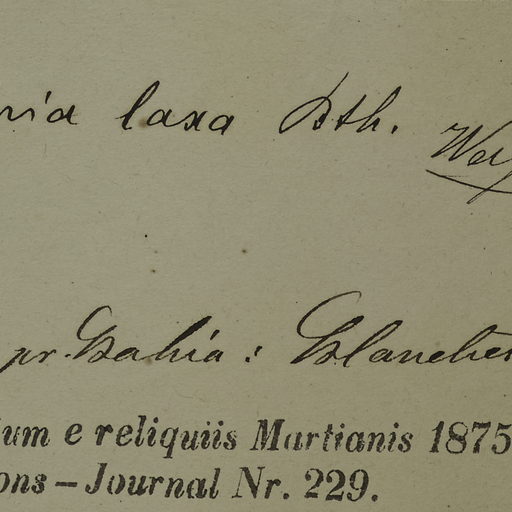 ria laxa Bth.
pr. Bahia: Blanchet
ium e reliquiis Martianis 1875
ons – Journal Nr. 229.